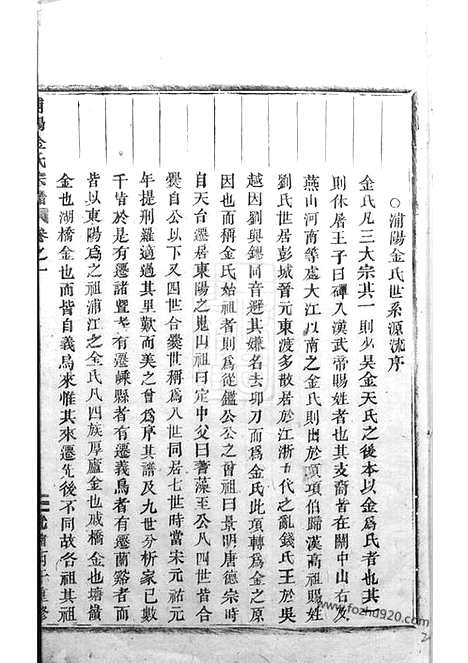 ○浦陽金氏世系源流序
金氏凡三大宗其一則少昊金天氏之後本以金爲氏者也其一
則休屠王子曰磾入漢武帝賜姓者也其支裔皆在關中山右及
燕山河南等處大江以南之金氏則出於項項伯歸漢高祖賜姓
劉氏世居彭城晉元東渡多散居於江浙五代之亂錢氏王於吳
越因劉與鏐同音避其嫌名去卯刀而爲金氏此項轉爲金之原
因也而稱金氏始祖者則爲從鑑公公之曾祖曰景明唐德宗時
自天台遷居東陽之鬼山祖曰定中父曰著藻至公凡四世皆合
爨自公以下又四世合爨世稱爲八世同居七世時當宋元祐元
年提刑羅適過其里歎而美之曾爲序其譜及九世分析家已數
千皆於是有遷諸暨者有遷嵊縣者有遷義烏者有遷蘭谿者而
皆以東陽爲之祖浦江之金氏凡四族厚廬金也戚橋金也塘嶺
金也湖橋金也而皆自義烏來惟其來遷先後不同故各祖其祖
浦陽金氏宗譜 卷之一
丙子重修
www.fozhu920.com